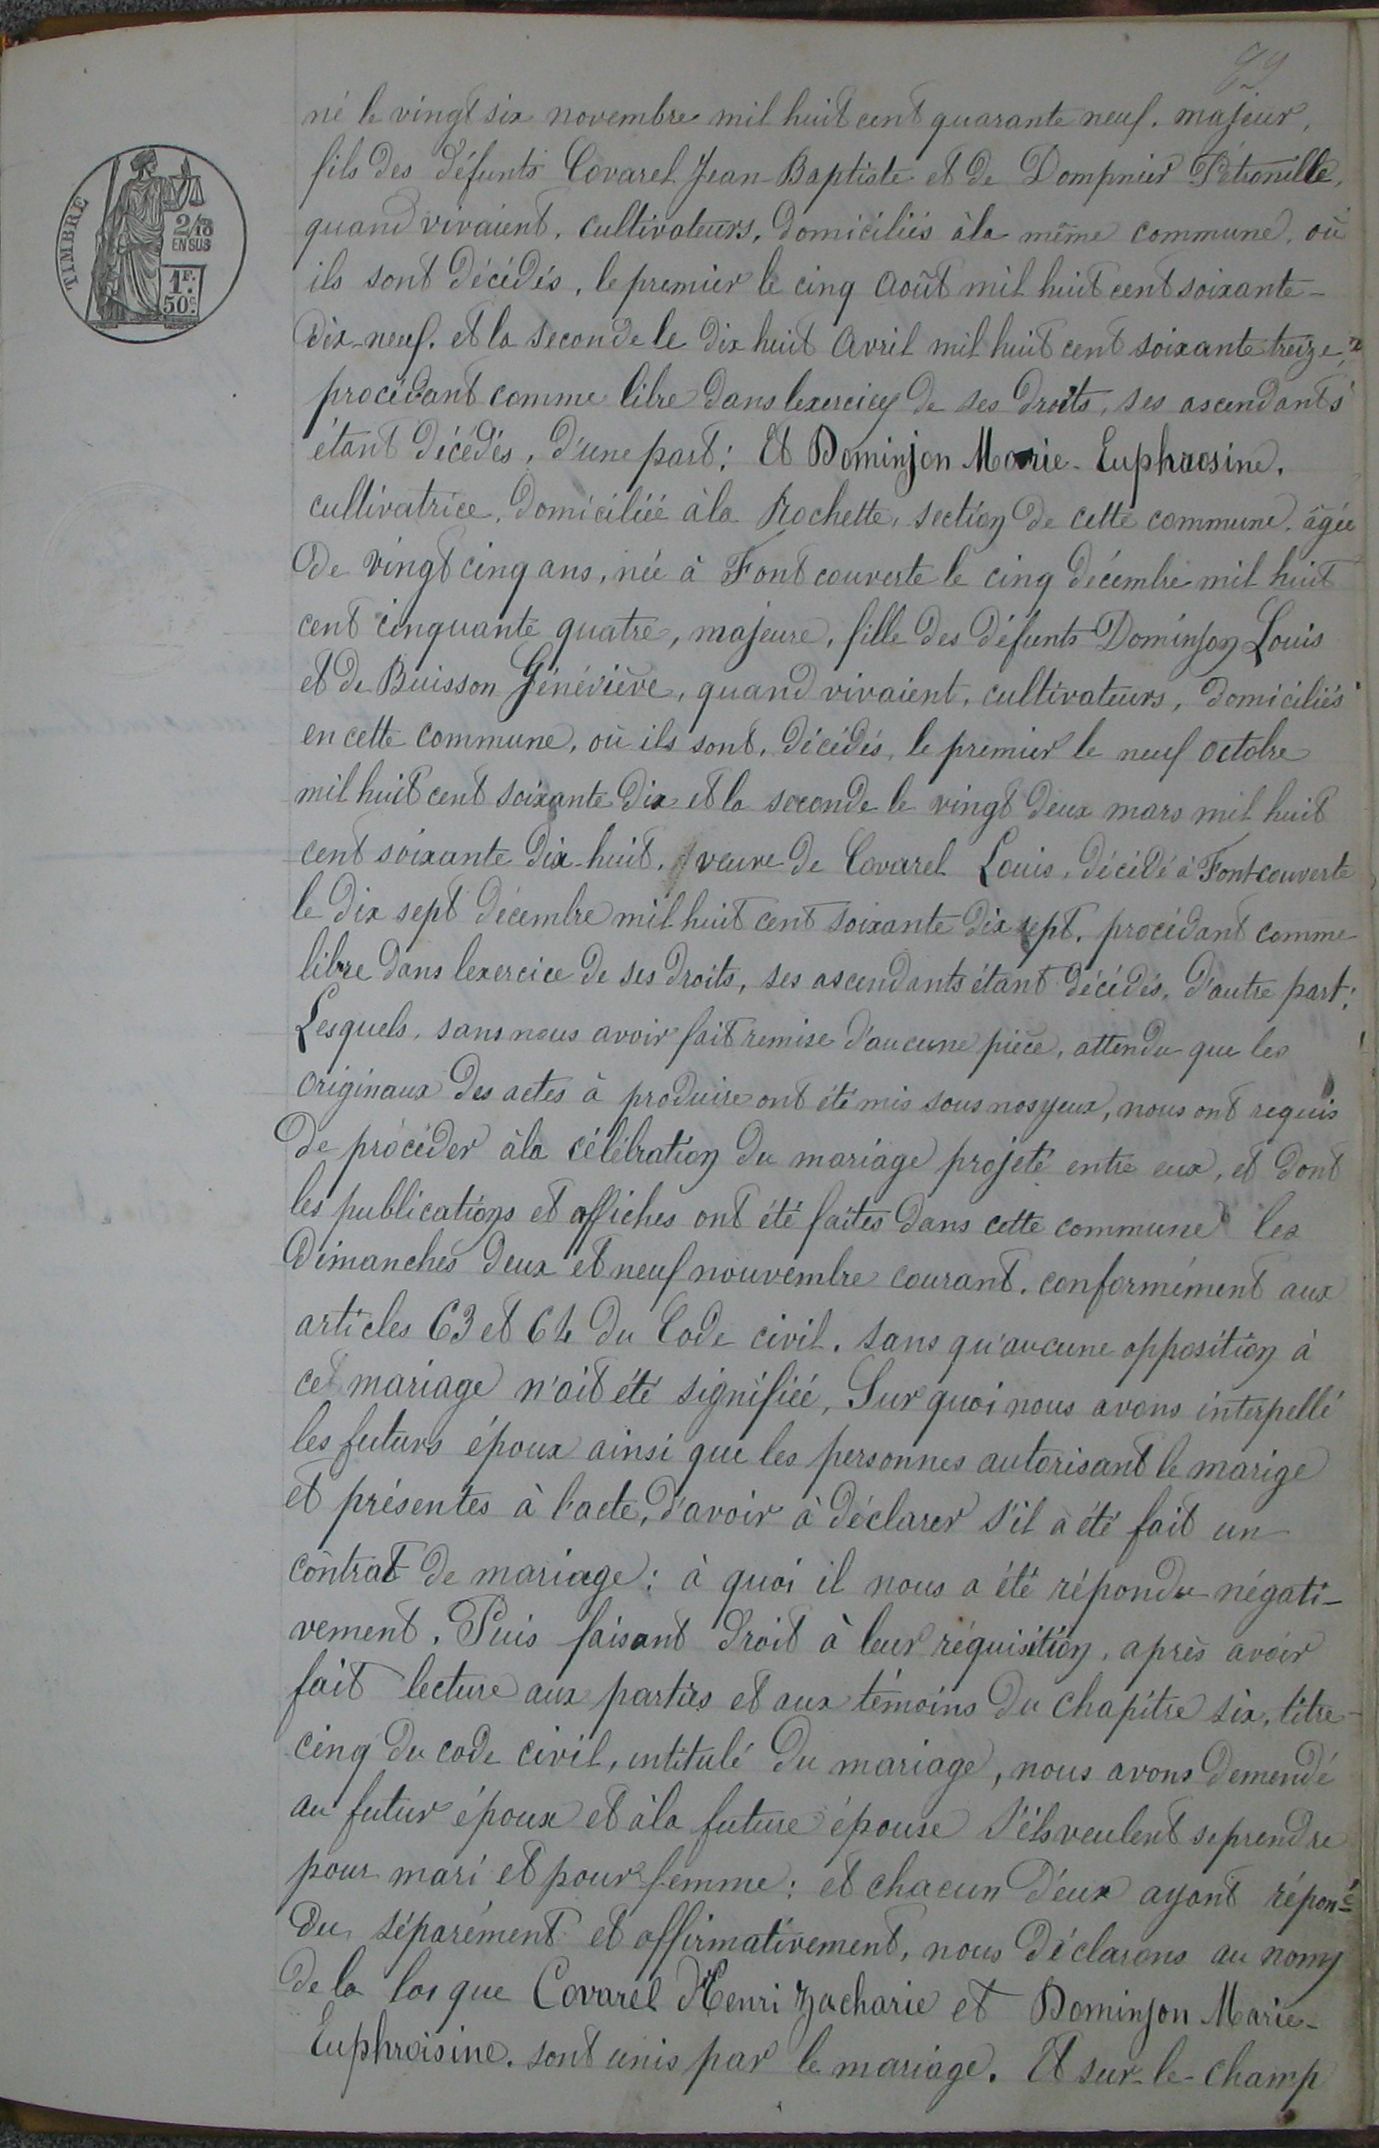 TIMBRE
2/10
EN SUS
1F.
50c.
né le vingt six novembre mil huit cent quarante neuf. majeur,
fils des défunts Covarel Jean-Baptiste et de Dompnier Pétronille,
quand vivaient, cultivateurs, domiciliés à la même commune, où
ils sont décédés, le premier le cinq Août mil huit cent soixante-
dix-neuf. et la seconde le dix huit Avril mil huit cent soixante treize,
procédant comme libre dans lexercice de ses droits, ses ascendants
étant décédés, d'une part; Et Dominjon Marie-Euphrosine,
cultivatrice, domiciliée à la Rochette, section de cette commune, âgée
de vingt cinq ans, née à Fontcouverte le cinq décembre mil huit
cent cinquante quatre, majeure, fille des défunts Dominjon Louis
et de Buisson Généviève, quand vivaient, cultivateurs, domiciliés
en cette commune, où ils sont, décédés, le premier le neuf octobre
mil huit cent soixante dix et la seconde le vingt deux mars mil huit
cent soixante dix-huit, veuve de Covarel Louis, décédé à Fontcouverte
le dix sept décembre mil huit cent soixante dix sept, procédant comme
libre dans lexercice de ses droits, ses ascendants étant décédés, d'autre part;
Lesquels, sans nous avoir fait remise d'aucune pièce, attendu que les
originaux des actes à produire ont été mis sous nos yeux, nous ont requis
de procéder à la célébration du mariage projeté entre eux, et dont
les publications et affiches ont été faites dans cette commune les
dimanches deux et neuf nouvembre courant. conformément aux
articles 63 et 64 du Code civil. sans qu'aucune opposition à
cet mariage n'ait été signifiée, Sur quoi nous avons interpellé
les futurs époux ainsi que les personnes autorisant le marige
et présentes à l'acte, d'avoir à déclarer s'il a été fait un
contrat de mariage; à quoi il nous a été répondu négati-
vement. Puis faisant droit à leur réquisition, après avoir
fait lecture aux parties et aux témoins du chapitre six, titre
cinq du code civil, intitulé du mariage, nous avons demendé
au futur époux et à la future épouse s'ils veulent se prendre
pour mari et pour femme: et chacun d'eux ayant répon=
du séparément et affirmativement, nous déclarons au nom
de la loi que Covarel Henri Zacharie et Dominjon Marie-
Euphroisine. sont unis par le mariage. Et sur-le-champ